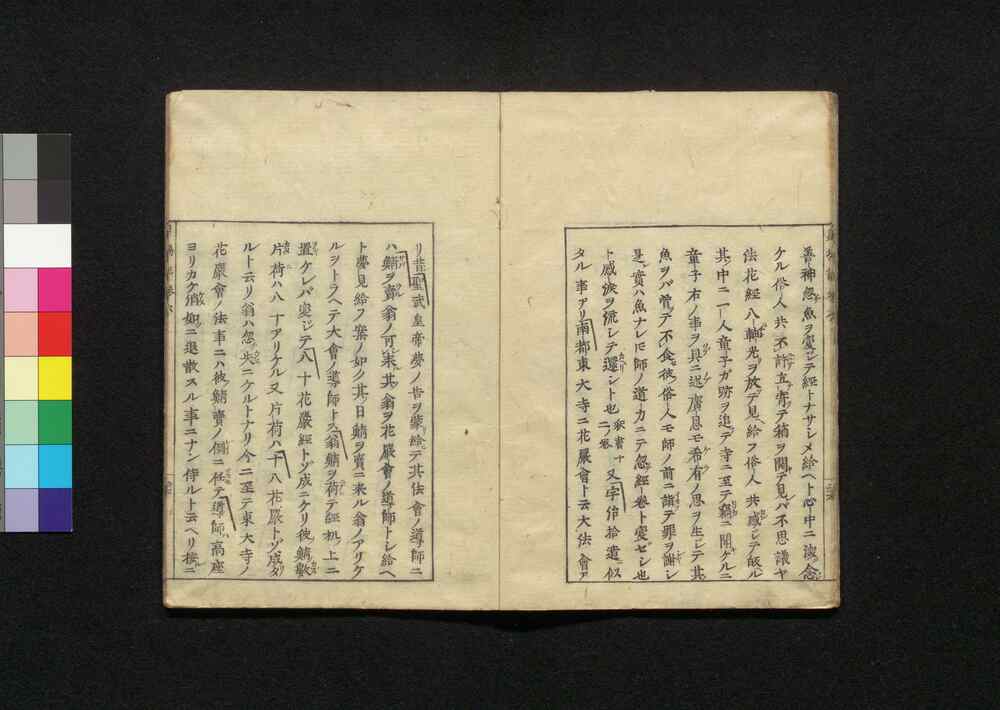 善神忽魚ヲ変シテ経トナサシメ給ヘト心中ニ深念
ケル俗人共不許シテ箱ヲ開テ見バ不思議ヤ
法花経八軸光ヲ放テ見ヘ給フ俗人共感シテ皈ル
其中ニ一人童子ガ跡ヲ追テ寺ニ至テ窺ニ聞ケルニ
童子右ノ事ヲ具ニ述廣恩モ希有ノ思ヲ生シテ其
魚ヲバ曽テ不食彼俗人モ師ノ前ニ詣テ罪ヲ謝シ
是実ハ魚ナレドモ師ノ道力ニテ忽経巻ト変セシ也
ト感涙ヲ流シテ還シト也 又字治拾遺ニ似
タル事アリ南都東大寺ニ花嚴會ト云大法會ア
リ昔聖武皇帝夢ノ告ヲ蒙給テ其法會ノ導師ニ
ハ鯖ヲ賣翁ノ可来其翁ヲ花嚴會ノ導師トシ給ヘ
ト夢見給フ案ノ如ク其日鯖ヲ賣ニ来ル翁ノアリケ
ルヲトラヘテ大會ノ導師トス翁鯖ヲ荷テ経机上ニ
置ケレバ変ジテ八十花嚴経トゾ成ニケリ彼鯖數
片荷ハ八十アリケル又片荷ハ十八花嚴トゾ成タ
ルト云リ翁ハ忽失ニケルトナリ今ニ至テ東大寺ノ
花嚴會ノ法事ニハ彼鯖賣ノ例ニ任テ導師高座
ヨリカケ消如ニ退散スル事ニナン侍ルト云ヘリ按ニ